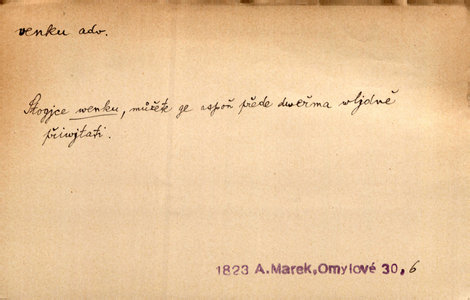 venku adv.
Stogjce wenku, můžete ge aspoň přede dweřma wljdně
přiwjtati.
1823 A. Marek, Omylové 30, 6